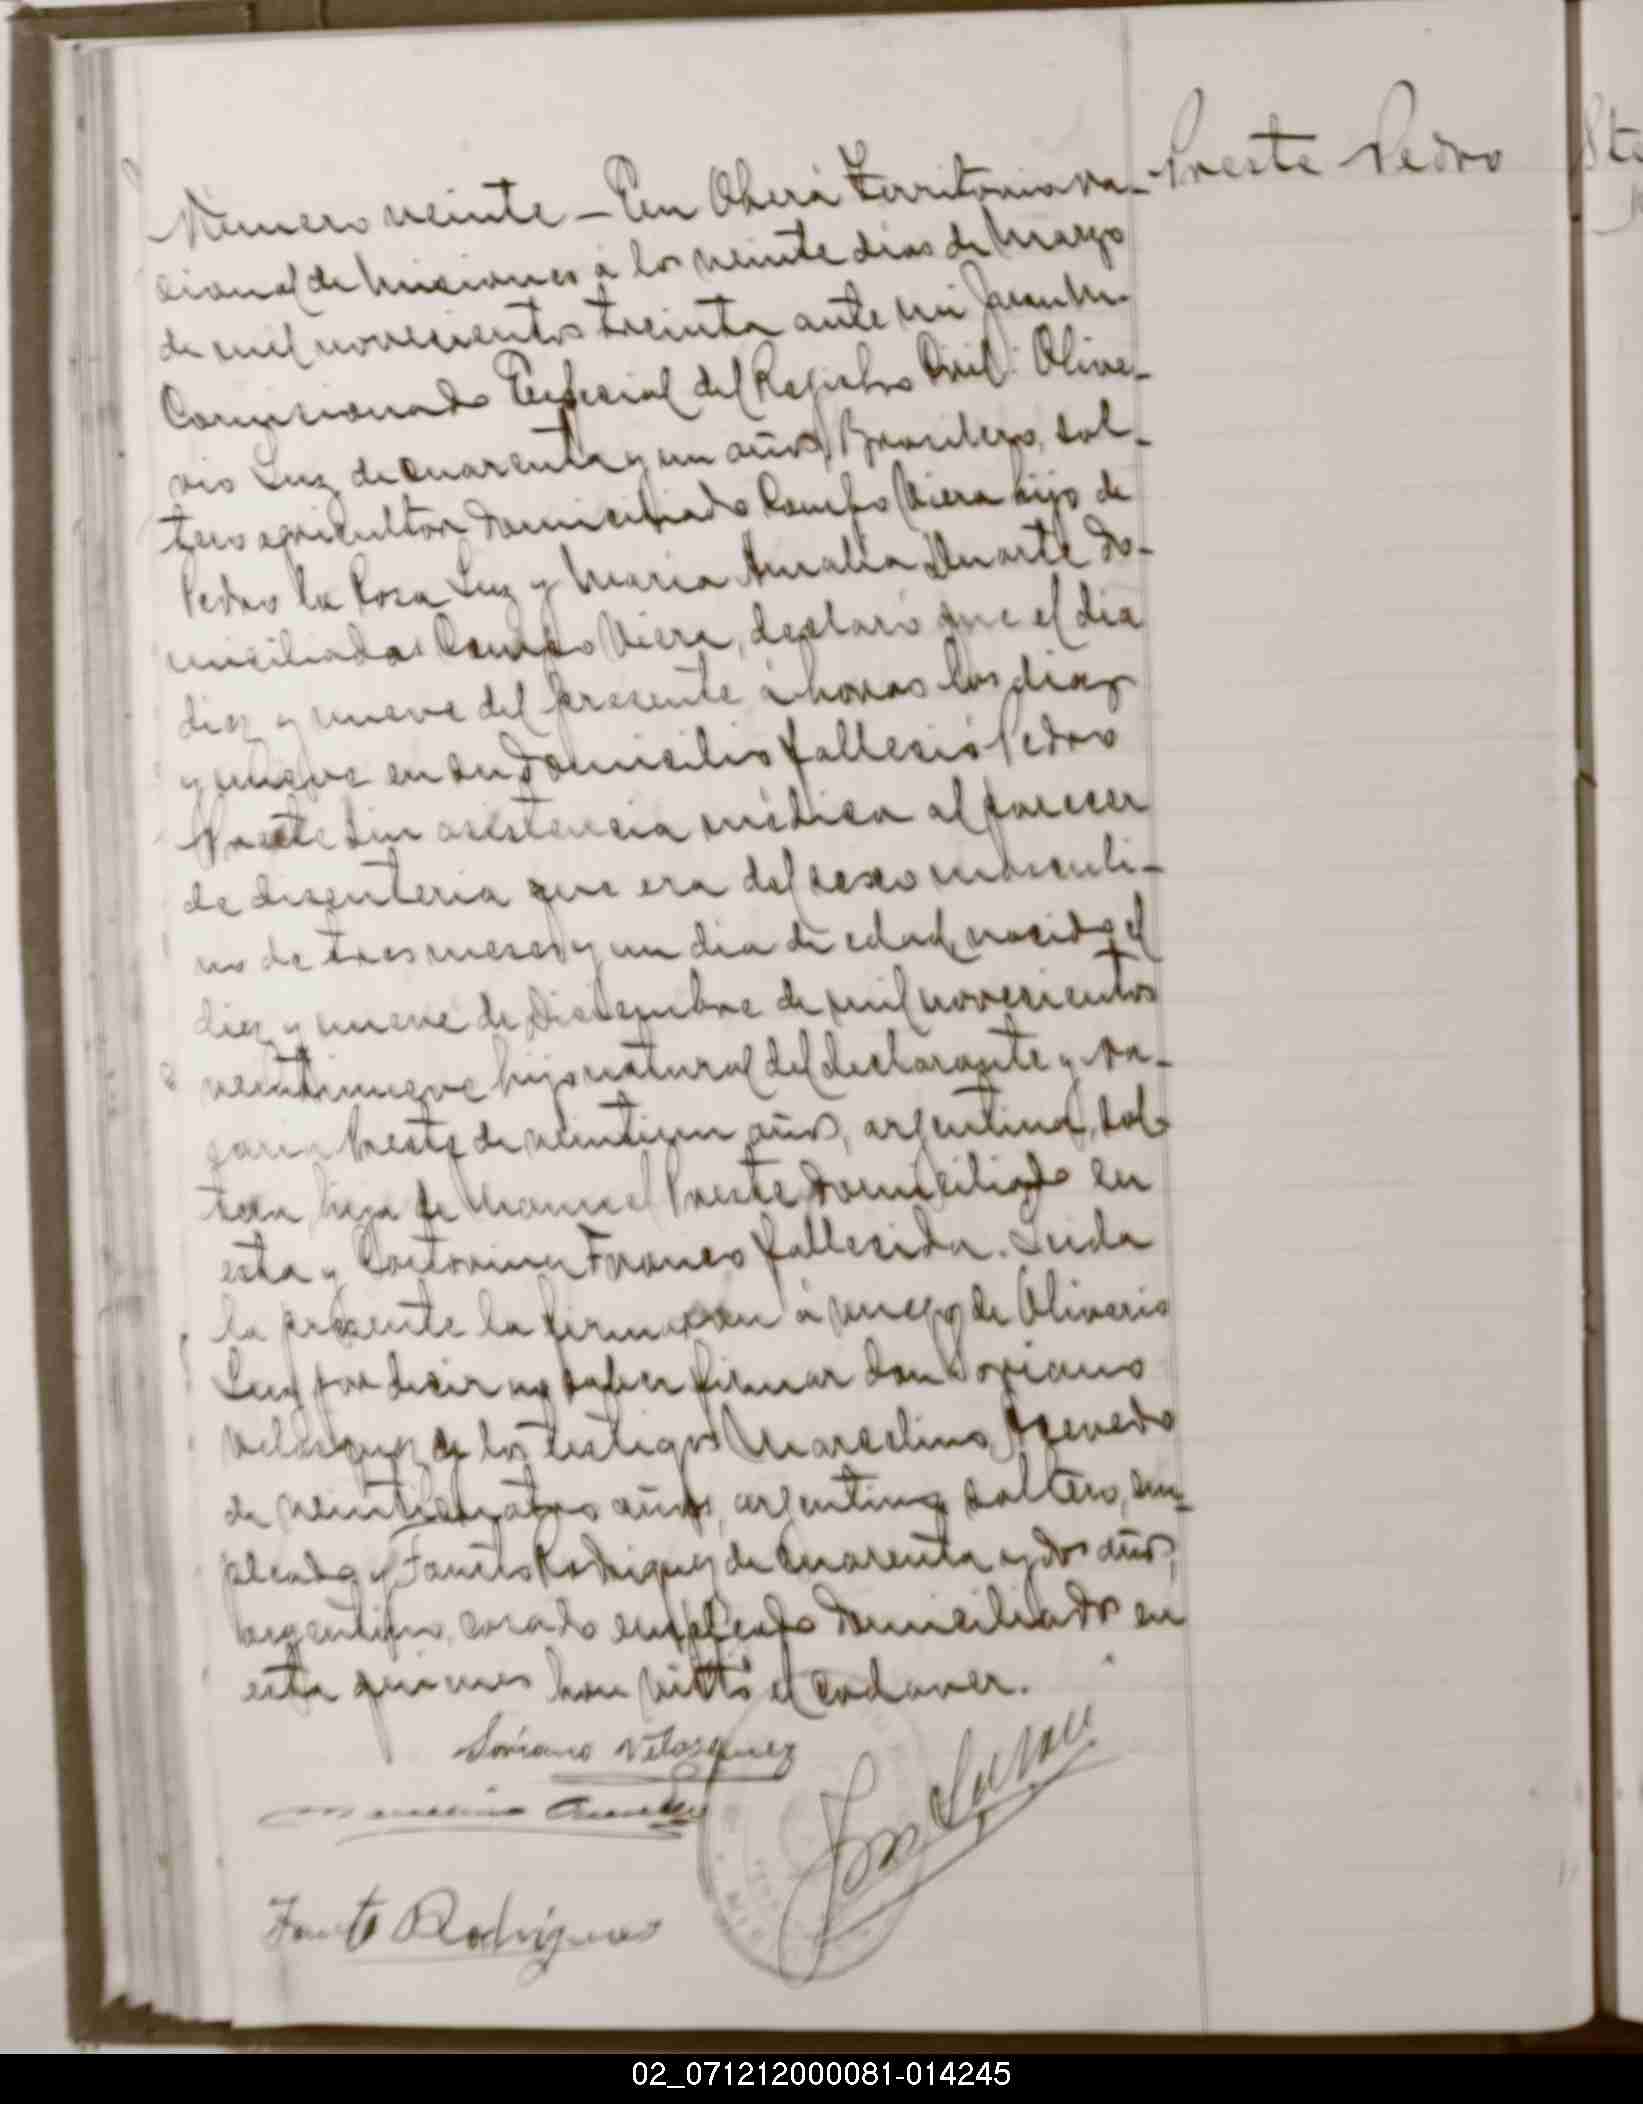 Preste Pedro
Numero veinte – En Oberá Territorio Na-
cional de Misiones á los veinte dias de Marzo
de mil novecientos treinta ante mi
Comisionado Especial del Registro Civil: Olive-
rio Luz de cuarenta y un años, Brasilero, sol-
tero agricultor domiciliado Campo Viera hijo de
Pedro la Rosa Luz y Maria Amalia Duarte do-
miciliados Campo Viera, declaró que el dia
diez y nueve del presente á horas las diez
y nueve en su domicilio falleció Pedro
Preste sin asistencia médica al parecer
de disenteria que era del sexo masculi-
no de tres meses y un dia de edad, nacido el
diez y nueve de Diciembre de mil novecientos
veintinueve hijo natural del declarante y
Preste de veintiun años, argentina, sol-
tera hija de Manuel Preste domiciliado en
esta y Franco fallecida. Leida
la presente la firmaron á ruego de Oliverio
Luz por decir no saber firmar don Soriano
Velasquez y los testigos Marcelino Acevedo
de veinticuatro años, argentino soltero, em-
pleado y Fausto Rodriguez de cuarenta y dos años,
argentino, casado empleado domiciliados en
esta quienes han visto el cadaver.
Soriano Velasquez
Marcelino Acevedo
Fausto Rodriguez
02_071212000081-014245